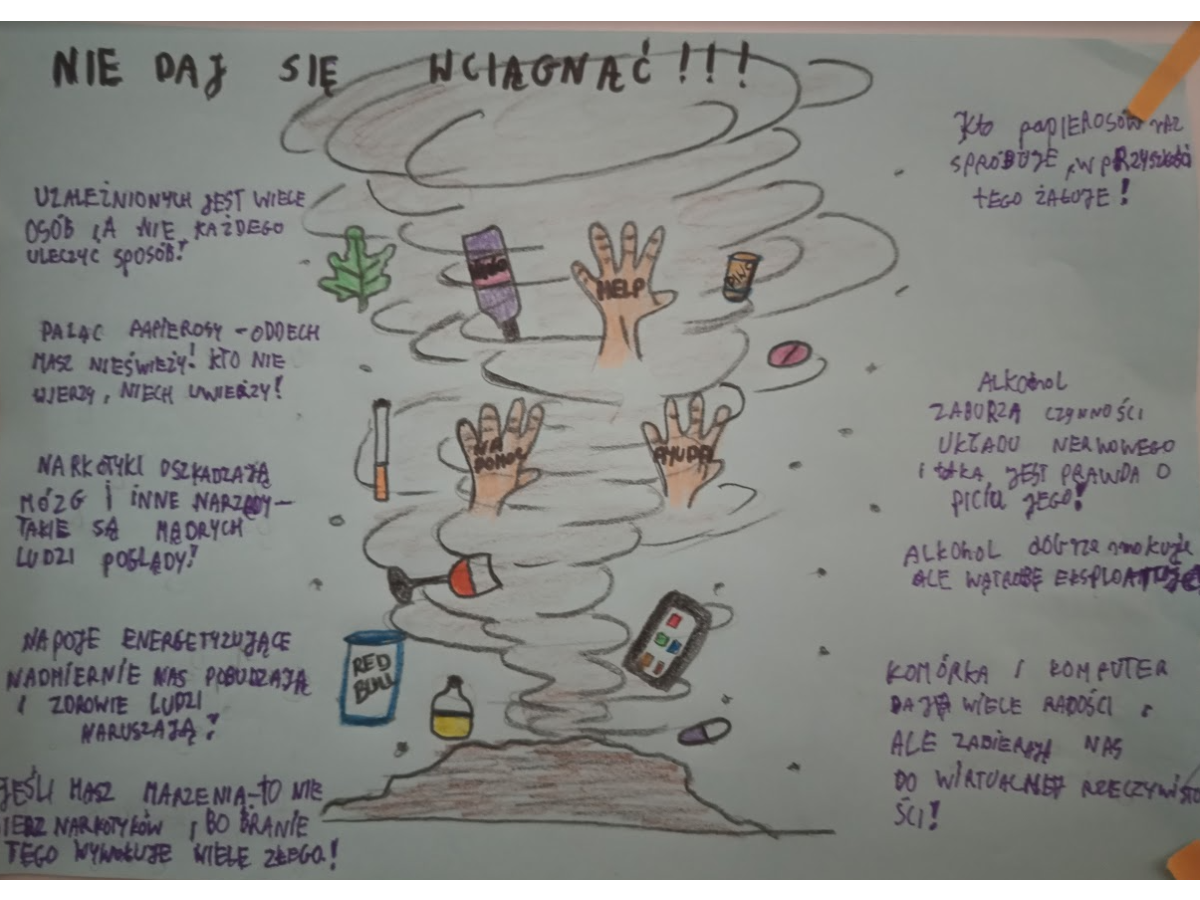 NIE DAJ SIĘ WCIĄGNĄĆ!!!
UZALEŻNIONYCH JEST WIELE
OSÓB , A NIE KAŻDEGO
ULECZYĆ SPOSÓB!
PALĄC PAPIEROSY - ODDECH
MASZ NIEŚWIEŻY! KTO NIE
WIERZY, NIECH UWIERZY!
NARKOTYKI USZKADZAJĄ
MÓZG I INNE NARZĄDY-
TAKIE SĄ MĄDRYCH
LUDZI POGLĄDY!
NAPOJE ENERGETYZUJĄCE
NADMIERNIE NAS POBUDZAJĄ
I ZDROWIE LUDZI
NARUSZAJĄ!
JEŚLI MASZ MARZENIA-TO NIE
BIERZ NARKOTYKÓW , BO BRANIE
TEGO WYWOŁUJE WIELE ZŁEGO!
WINO
HELP
PIWO
NA
POMOC
AYUDA
RED
BULL
Kto PAPIEROSÓW raz
SPRÓBUJE , W PRZYSZŁOŚCI
TEGO ŻAŁUJE!
ALKOHOL
ZABURZA CZYNNOŚCI
UKŁADU NERWOWEGO
i taka JEST PRAWDA O
PICIU JEGO!
ALKOHOL dobrze smakuje
ALE WĄTROBĘ EKSPLOATUJE
KOMÓRKA I KOMPUTER
DAJĄ WIELE RADOŚCI ,
ALE ZABIERAJĄ NAS
DO WIRTUALNEJ RZECZYWISTO
ŚCI!